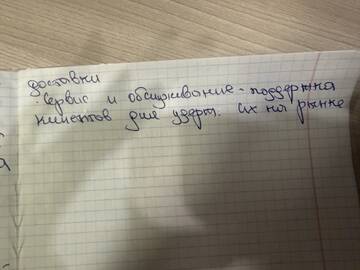 доставки
· Сервис и обслуживание - поддержка
клиентов для удерж. их на рынке